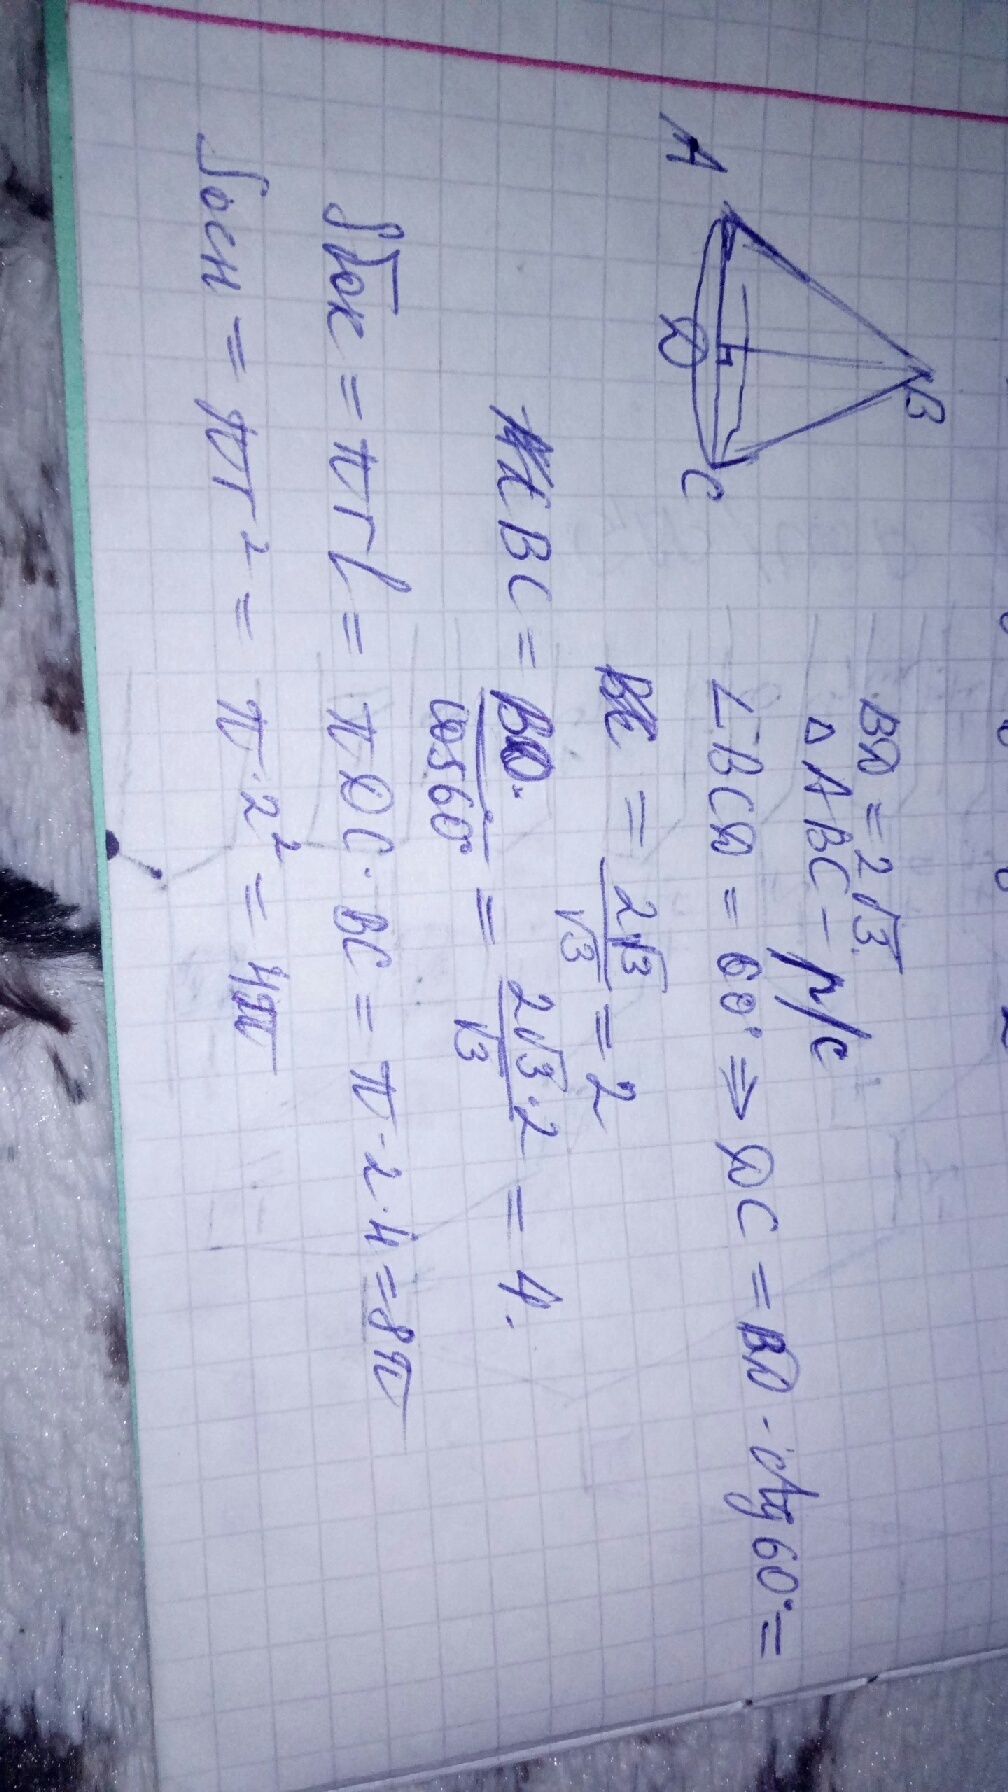 B
A
D
C
BD = 2√3.
△ABC - р/с
∠BCD = 60° ⇒ DC = BD · ctg60° =
= 2√3/√3 = 2
BC = BD/cos60° = 2√3·2/√3 = 4.
Sбок = πrl = πDC·BC = π·2·4 = 8π
Sосн = πr² = π·2² = 4π